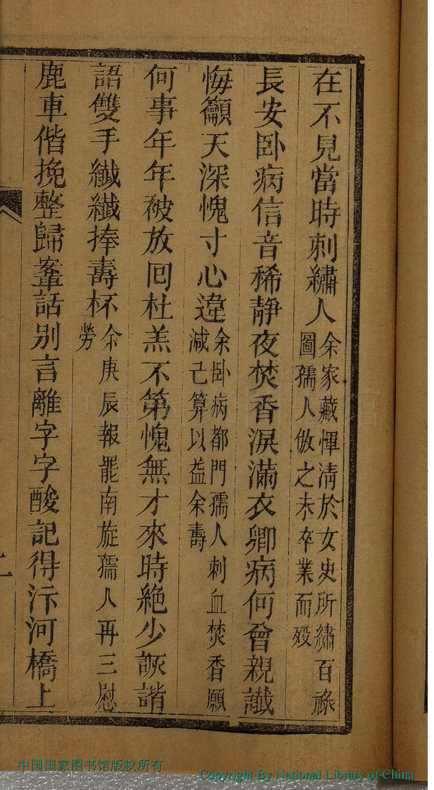 在不見當時刺繡人余家藏惲清於女史所繡百祿圖孺人倣之未卒業而歿
長安卧病信音稀靜夜焚香淚滿衣卿病何曾親讖
悔籲天深愧寸心違余卧病都門孺人刺血焚香願減己算以益余壽
何事年年被放回杜羔不第愧無才來時絶少詼諧
語雙手纖纖捧壽杯余庚辰報罷南旋孺人再三慰勞
鹿車偕挽整歸鞌話别言離字字酸記得汴河橋上
二
中国国家图书馆版权所有
Copyright By National Library of China